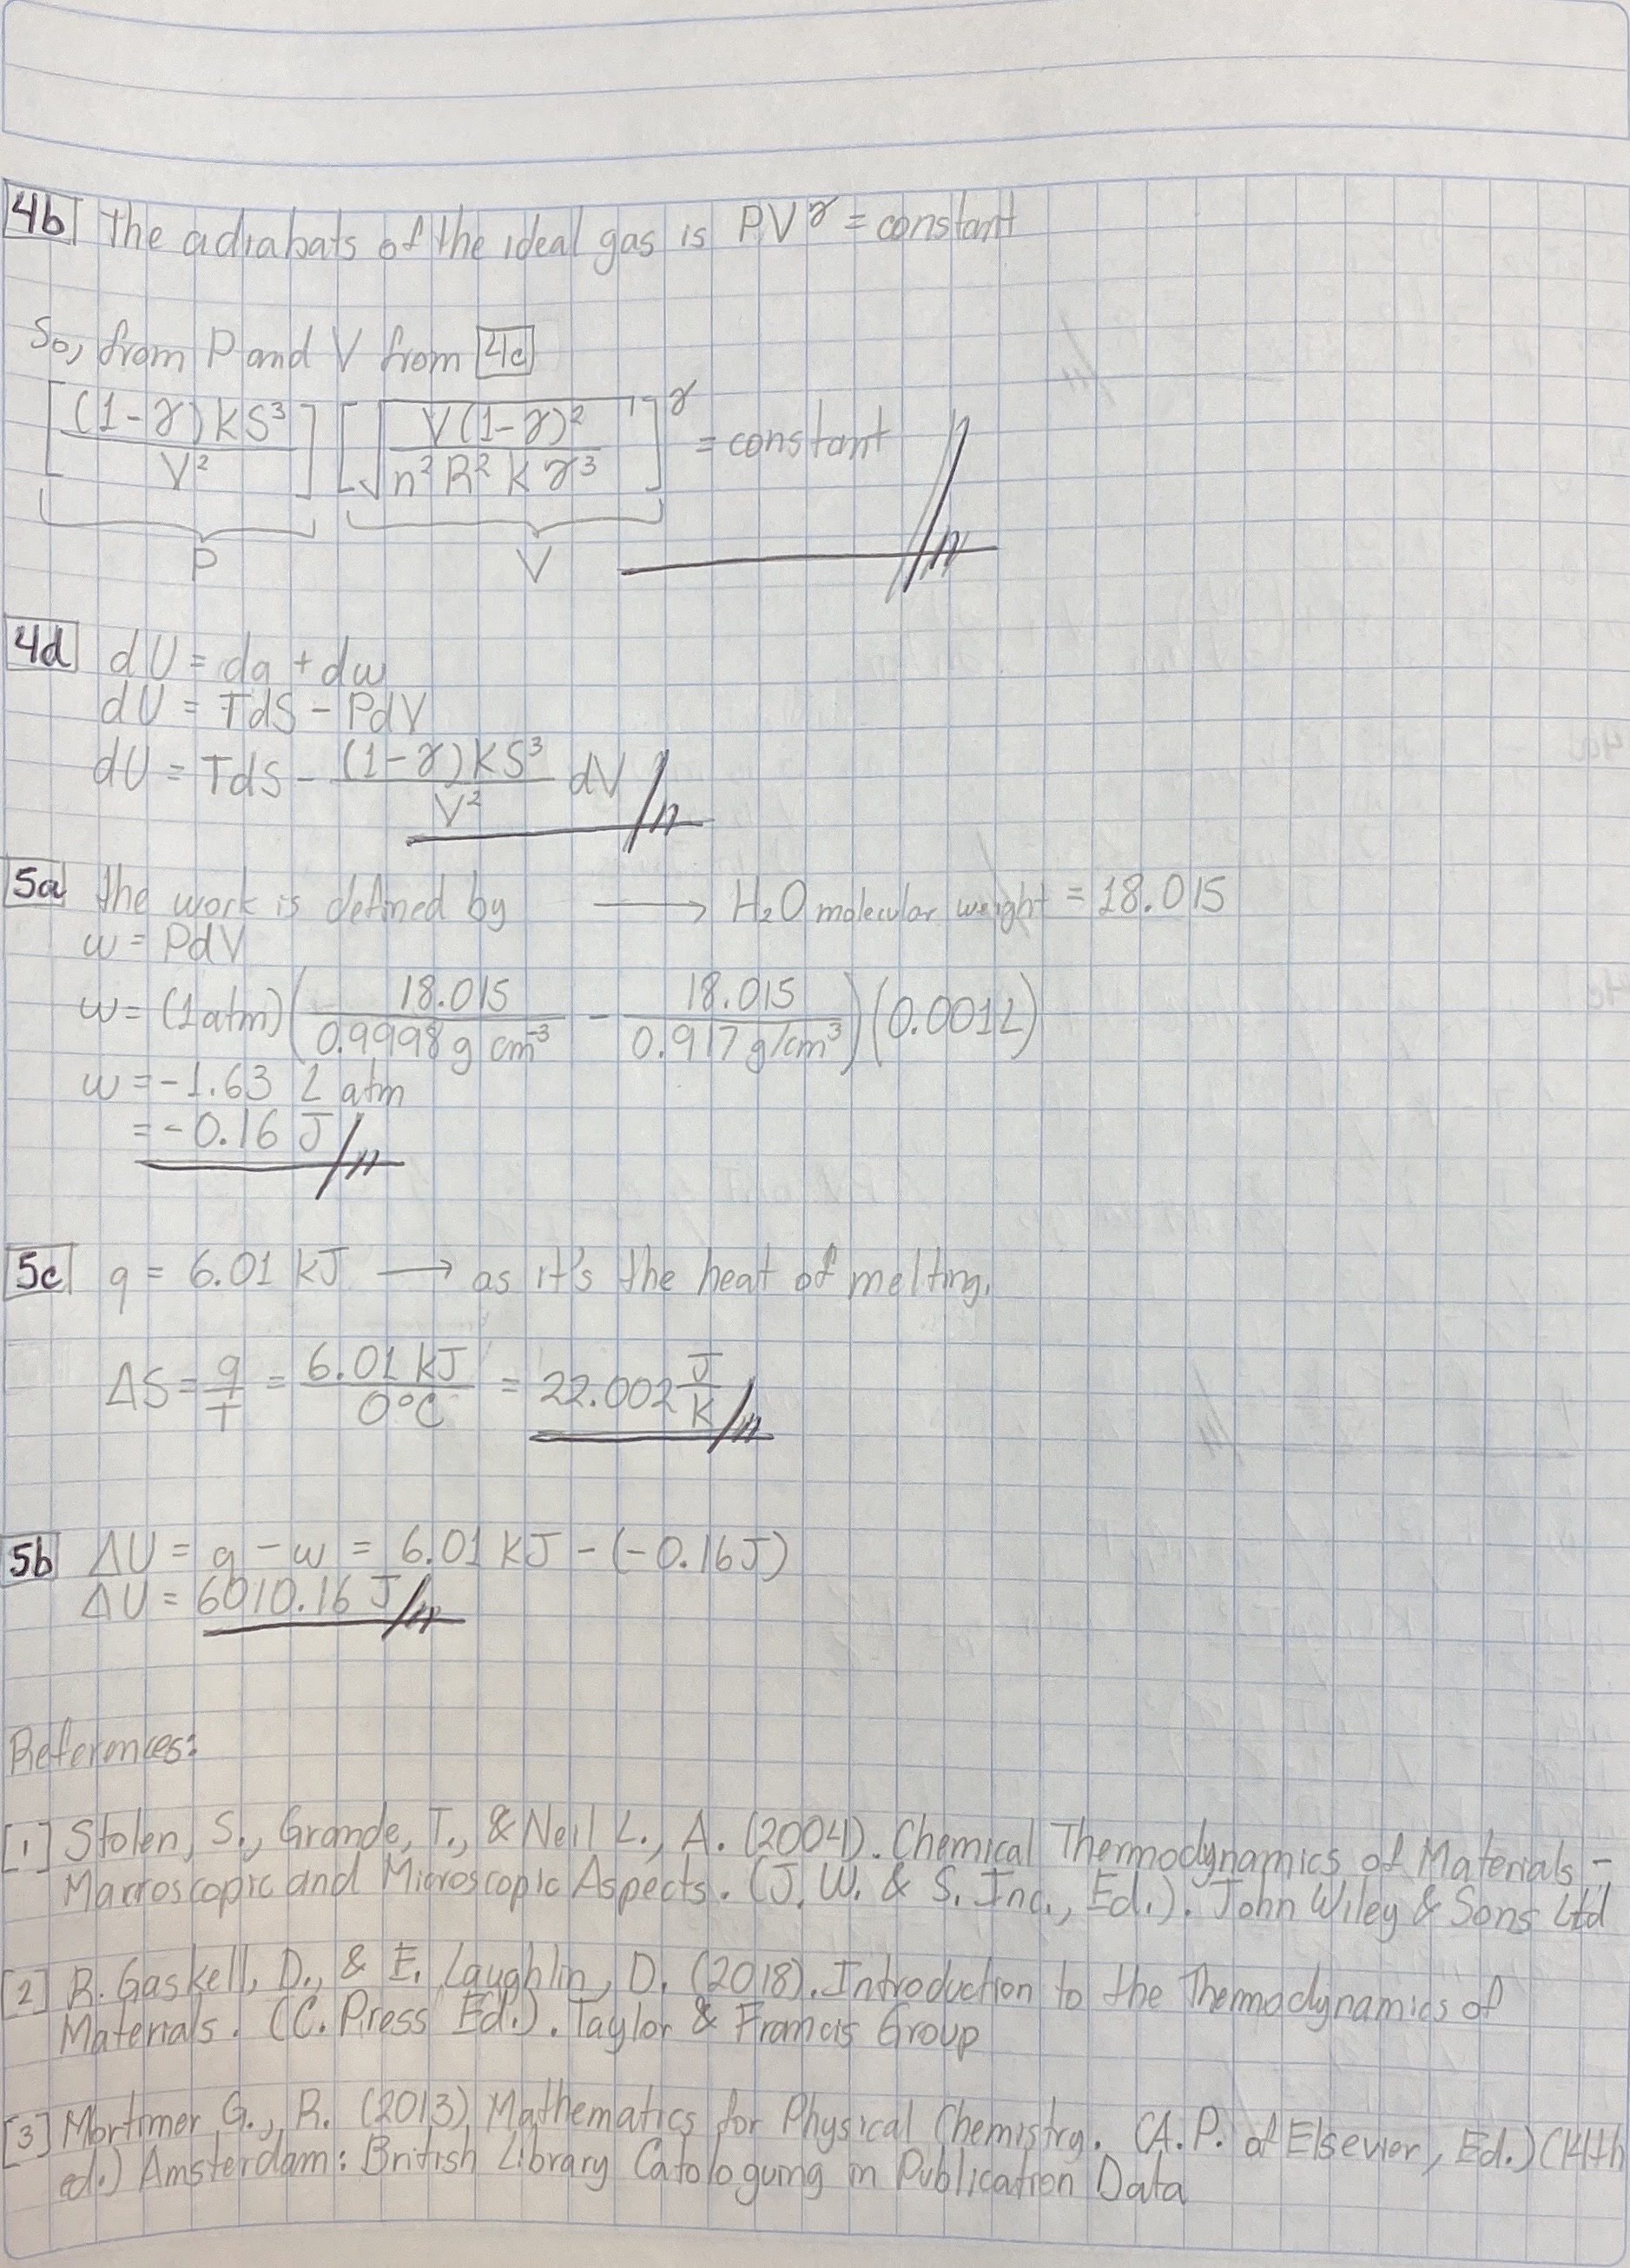 4b The adiabats of the ideal gas is PV^γ = constant
So, from P and V from 4c
[(1-γ)KS³/V²] [√(V(1-γ)²/n²R²Kγ³)]^γ = constant
P V
4d dU = dq + dw
dU = TdS - PdV
dU = TdS - (1-γ)KS³/V² dV
5a The work is defined by → H₂O molecular weight = 18.015
w = PdV
w = (1 atm)(18.015/0.9998 g cm⁻³ - 18.015/0.917 g/cm³)(0.001L)
w = -1.63 L atm
= -0.16 J
5c q = 6.01 kJ → as it's the heat of melting.
ΔS = q/T = 6.01 kJ/0°C = 22.002 J/K
5b ΔU = q - w = 6.01 kJ - (-0.16J)
ΔU = 6010.16 J
References:
[1] Stolen, S., Grande, T., & Neil L., A. (2004). Chemical Thermodynamics of Materials -
Macroscopic and Microscopic Aspects. (J. W. & S. Inc., Ed.). John Wiley & Sons Ltd
[2] R. Gaskell, D., & E. Laughlin, D. (2018). Introduction to the Thermodynamics of
Materials. (C. Press Ed.). Taylor & Francis Group
[3] Mortimer G., R. (2013) Mathematics for Physical Chemistry. (A.P. of Elsevier, Ed.) (4th
ed.) Amsterdam: British Library Catologuing in Publication Data